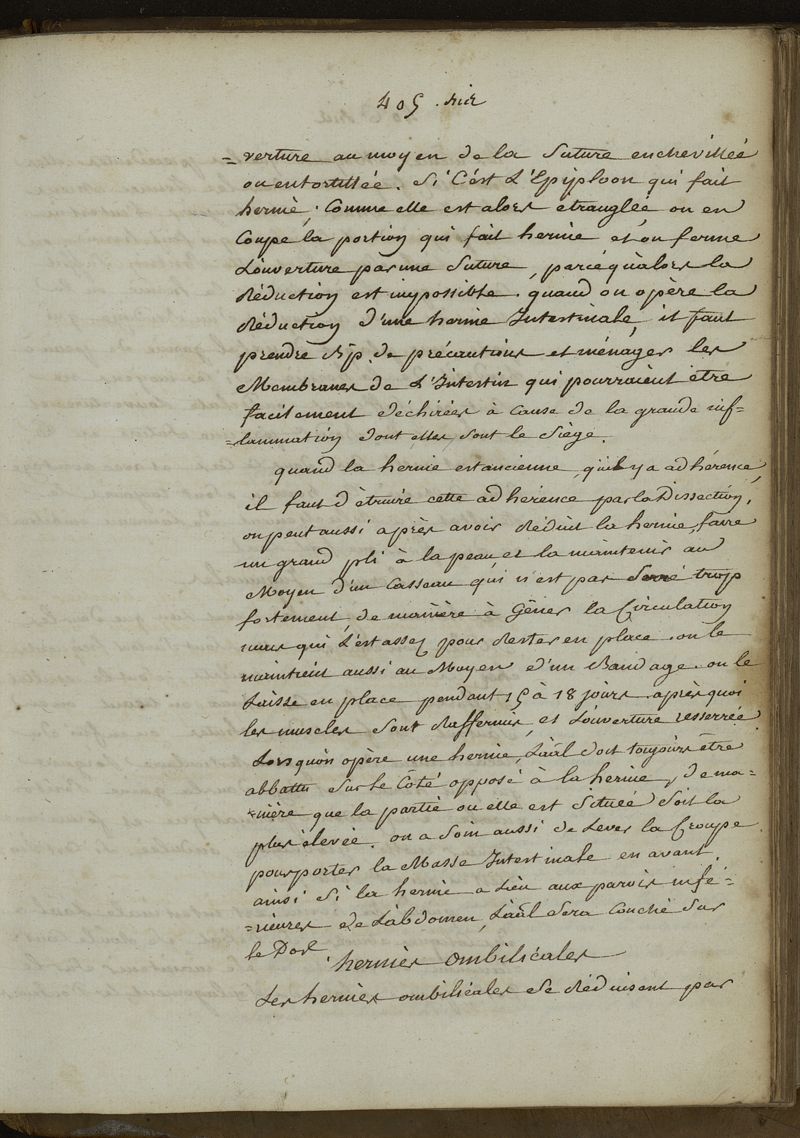 405.
=verture au moyen de la Suture enchevillée
ou entortillée. Si C'ést L'Epiploon qui fait
hernie, Comme elle est alors étranglée, on en
Coupe la portion qui fait hernie et on ferme
L'ouverture par une Suture, parcéqu'alors la
Réduction est impossible. quand on opère la
Réduction d'une hernie Intestinale, il faut
prendre de précautions et ménager les
Membranes de L'Intestin qui pourraient être
facilement déchirées à Cause de la grande inf=
=lammation dont elles sont le Siége.
quand la hernie est ancienne, qu'il y a adhérence,
il faut détruire cette adhérence par la Dissection,
on peut aussi après avoir Réduit la hernie, faire
un grand pli à la peau, et la maintenir au
Moyen d'un Casseau qui n'est pas Serré trop
fortement, de manière à Gêner la Circulation
mais qui L'est assez pour Rester en place. on le
maintient aussi au Moyen d'un Bandage. on le
Laisse en place pendant 15 à 18 jours. après quoi
les muscles sont Raffermis, et L'ouverture resserrée.
Lorsqu'on opère une hernie, L'a͞ál doit toujours être
abbattu Sur le Côté opposé à la hernie, de ma=
=nière que la partie où elle est située Soit la
plus élevée. on a Soin aussi de Lever la Croupe
pour porter la Masse Intestinale en avant.
ainsi Si la hernie a Lieu aux parois infé=
=rieures de L'abdomen, L'a͞ál Sera Couché Sur
le Dos.
hernies Ombilicales
Les hernies ombilicales Se Réduisent par